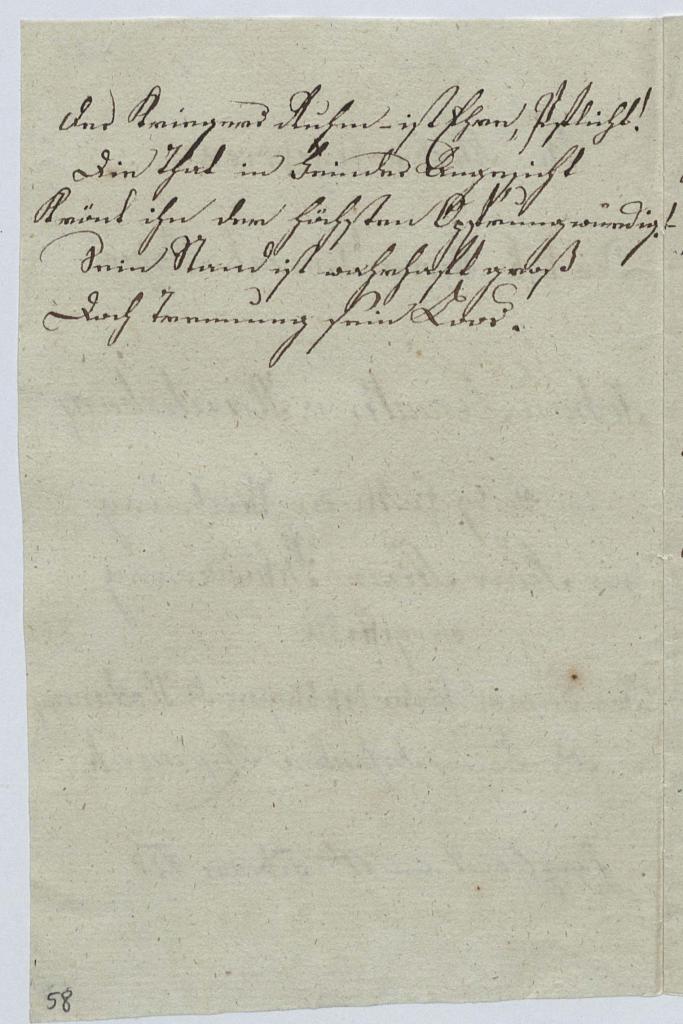 Des Kriegers Ruhm – ist Ehre, Pflicht!
Die That in Feindes Angesicht
Krönt ihn der höchsten Opferung würdig! –
Sein Stand ist wahrhaft groß
Doch Trennung sein Loos.
58